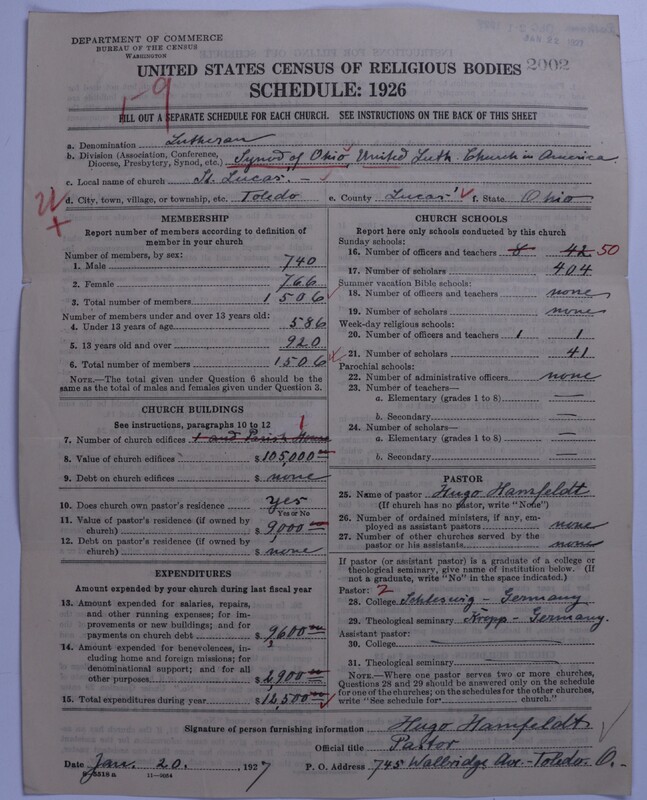 DEPARTMENT OF COMMERCE
BUREAU OF THE CENSUS
WASHINGTON
JAN 22 1927
UNITED STATES CENSUS OF RELIGIOUS BODIES 2002
SCHEDULE: 1926
1-9
FILL OUT A SEPARATE SCHEDULE FOR EACH CHURCH. SEE INSTRUCTIONS ON THE BACK OF THIS SHEET
a. Denomination Lutheran
b. Division (Association, Conference, Diocese, Presbytery, Synod, etc.) Synod of Ohio United Luth. Church in America
c. Local name of church St. Lucas.
d. City, town, village, or township, etc. Toledo e. County Lucas f. State Ohio
MEMBERSHIP
Report number of members according to definition of
member in your church
Number of members, by sex:
1. Male 740
2. Female 766
3. Total number of members 1506
Number of members under and over 13 years old:
4. Under 13 years of age 586
5. 13 years old and over 920
6. Total number of members 1506
NOTE.—The total given under Question 6 should be the
same as the total of males and females given under Question 3.
CHURCH BUILDINGS
See instructions, paragraphs 10 to 12
7. Number of church edifices 1 and Parish House 1
8. Value of church edifices $105,000
9. Debt on church edifices $ none
10. Does church own pastor's residence? yes
Yes or No
11. Value of pastor's residence (if owned by
church) $ 9,000
12. Debt on pastor's residence (if owned by
church) $ none
EXPENDITURES
Amount expended by your church during last fiscal year
13. Amount expended for salaries, repairs,
and other running expenses; for im-
provements or new buildings; and for
payments on church debt $ 9600
14. Amount expended for benevolences, in-
cluding home and foreign missions; for
denominational support; and for all
other purposes $ 2,900
15. Total expenditures during year $ 12,500
CHURCH SCHOOLS
Report here only schools conducted by this church
Sunday schools:
16. Number of officers and teachers 8 42 50
17. Number of scholars 404
Summer vacation Bible schools:
18. Number of officers and teachers none
19. Number of scholars none
Week-day religious schools:
20. Number of officers and teachers 1 1
21. Number of scholars 41
Parochial schools:
22. Number of administrative officers none
23. Number of teachers—
a. Elementary (grades 1 to 8) —
b. Secondary —
24. Number of scholars—
a. Elementary (grades 1 to 8) —
b. Secondary —
PASTOR
25. Name of pastor Hugo Hamfeldt
(If church has no pastor, write "None")
26. Number of ordained ministers, if any, em-
ployed as assistant pastors none
27. Number of other churches served by the
pastor or his assistants none
If pastor (or assistant pastor) is a graduate of a college or
theological seminary, give name of institution below. (If
not a graduate, write "No" in the space indicated.)
Pastor: 2
28. College Schleswig - Germany
29. Theological seminary Kropp - Germany.
Assistant pastor:
30. College
31. Theological seminary
NOTE.—Where one pastor serves two or more churches,
Questions 28 and 29 should be answered only on the schedule
for one of the churches; on the schedules for the other churches,
write "See schedule for church."
Signature of person furnishing information Hugo Hamfeldt
Official title Pastor
Date Jan. 20. , 1927 P. O. Address 745 Walbridge Av. - Toledo. O. -
8-5318 a 11-9084